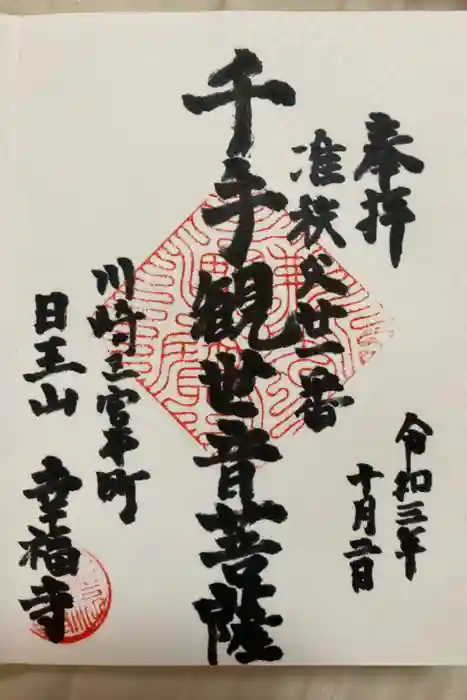 奉拝
准秩父廿一番
令和三年
十月二日
千手観世音菩薩
川崎
宮本町
日王山
幸福寺